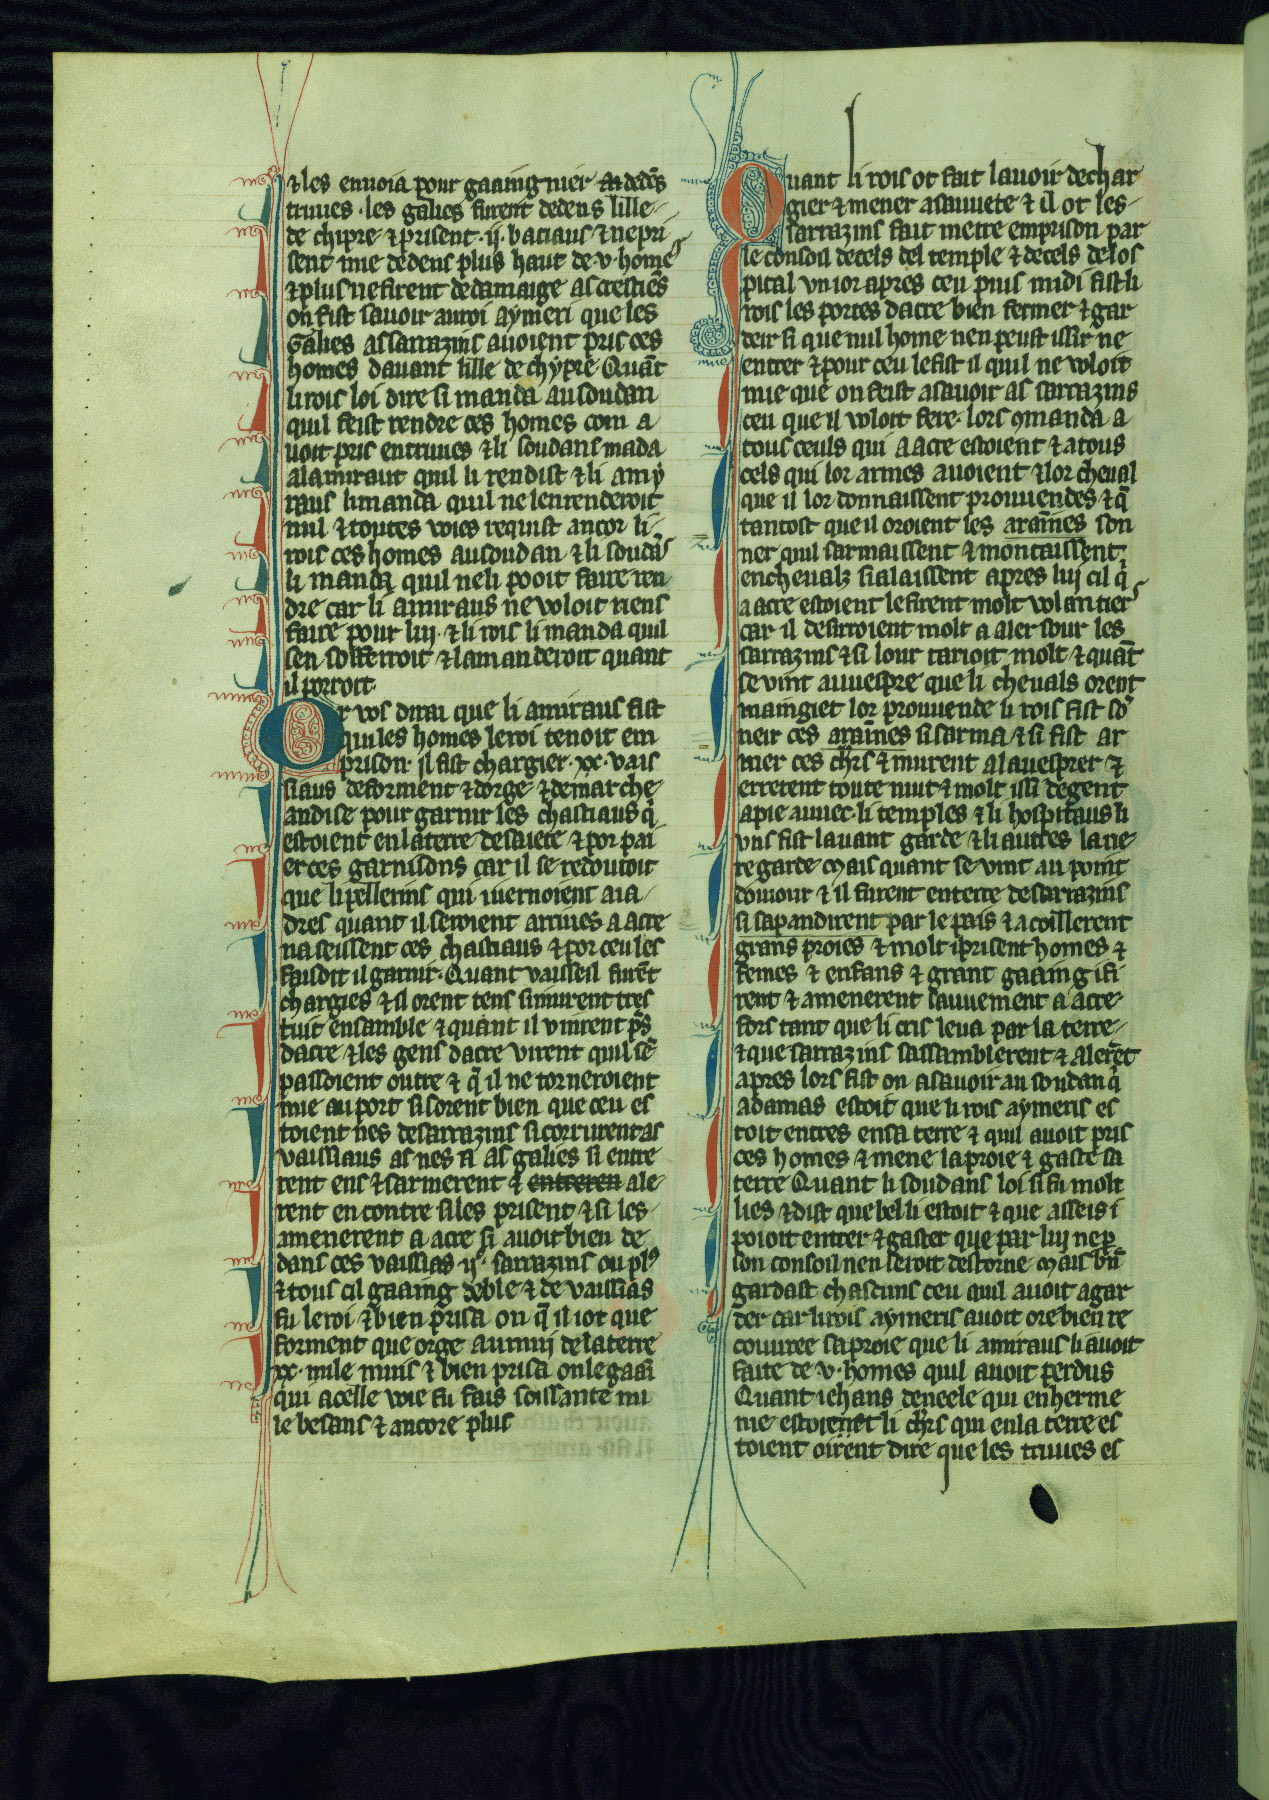 ⁊ les enuoia pour gaaingnier dedēs
triuues · les galies furent dedens lille
de chipre ⁊ prisent · ij · batiaus ⁊ ne pri
sent mie dedens plus haut de · v · homes
⁊ plus ne firent de damaige as crestiēs
on fist sauoir au roi aymeri que les
Galies as sarrazins auoient pris ces
homes dauant lille de chypre Quāt
li rois loi dire si manda au soudan
quil feist rendre ces homes com a
uoit pris en triuues ⁊ li soudans māda
a lamiraut quil li rendist ⁊ li amy
raus li manda quil ne len renderoit
nul ⁊ toutes voies requist ancor li
rois ces homes au soudan ⁊ li soudās
li manda quil ne li pooit faire ren
dre car li amiraus ne voloit riens
faire pour lui · ⁊ li rois li manda quil
sen sofferroit ⁊ lamanderoit quant
il porroit
Or vos dirai que li amiraus fist
qui les homes le roi tenoit em
prison · il fist chargier · xx · vais
siaus de forment ⁊ dorge · ⁊ de marche
andise pour garnir les chastiaus q̄
estoient en la terre de saiete ⁊ por pai
er ces garnisons car il se redoutoit
que li pellerins qui iuernoient a ia
dres quant il seroient arriues a acre
na seissent ces chastiaus ⁊ por ceu les
faudit il garnir · Quant vaissel furēt
chargies ⁊ il orent tens si murent tres
tuit ensamble ⁊ quant il vinrent p̄s
dacre ⁊ les gens dacre virent quil sē
passoient outre ⁊ q̄ il ne torneroient
mie au port si sorent bien que ceu es
toient nes de sarrazins si corrurent as
vaissiaus as nes ⁊ as galies si entre
rent ens ⁊ sarmerent ⁊ entreren ale
rent en contre si les prisent ⁊ si les
amenerent a acre si auoit bien de
dans ces vaissias ijᶜ sarrazins ou plꝰ
⁊ tous cil gaaing de ble ⁊ de vaissias
fu le roi ⁊ bien prisa on q̄ il i ot que
forment que orge au muy de la terre
xx · mile muis ⁊ bien prisa on le gaāi
qui a celle voie fu fais soissante mi
le besans ⁊ ancore plus
Quant li rois ot fait lauoir dechar
gier ⁊ mener a sauuete ⁊ il ot les
sarrazins fait metre em prison par
le consoil de cels del temple ⁊ de cels de los
pital vn ior apres ceu puis midi fist li
rois les portes dacre bien fermer ⁊ gar
deir si que nul home nen peust issir ne
entrer ⁊ pour ceu le fist il quil ne voloit
mie que on feist asauoir as sarrazins
ceu que il voloit fere · lors ꝯmanda a
tous ceuls qui a acre estoient ⁊ a tous
cels qui lor armes auoient ⁊ lor cheual
que il lor donnaissent prouuendes ⁊ q̄
tantost que il oroient les araīnes son
ner quil sarmaissent ⁊ montaissent
en cheualz si alaissent apres lui cil q̄
a acre estoient le firent molt volantiers
car il desirroient molt a aler sour les
sarrazins ⁊ si lour tarioit molt ⁊ quāt
se vint au uespre que li cheuals orent
maingiet lor prouuende li rois fist sō
neir ces araīnes si sarma ⁊ si fist ar
mer ces chr̄s ⁊ murent a lauesprer ⁊
errerent toute nuit ⁊ molt issi de gent
a pie auuec · li temples ⁊ li hospitaus li
vns fist lauant garde ⁊ li autres la rie
re garde Mais quant se vint au point
dou iour ⁊ il furent en terre de sarrazins
si sapandirent par le pais ⁊ acoillerent
grans proies ⁊ molt i prisent homes ⁊
femes ⁊ enfans ⁊ grant gaaing i fi
rent ⁊ amenerent sauuement a acre
fors tant que li cris leua par la terre
⁊ que sarrazins sassamblerent ⁊ alerēt
apres lors fist on asauoir au soudan q̄
a damas estoit que li rois aymeris es
toit entres en sa terre ⁊ quil auoit pris
ces homes ⁊ mene la proie ⁊ gaste sa
terre Quant li soudans loi si fu molt
lies ⁊ dist que bel li estoit ⁊ que asseis i
pooit entrer ⁊ gaster que par lui ne ꝑ
son consoil nen seroit destorne Mais bn̄
gardast chascuns ceu quil auoit a gar
der car li rois aymeris auoit ore bien re
couuree sa proie que li amiraus li auoit
faite de · v · homes quil auoit perdus
Quant iehans de neele qui en herme
nie estoient li chr̄s qui en la terre es
toient oirent dire que les triuues es